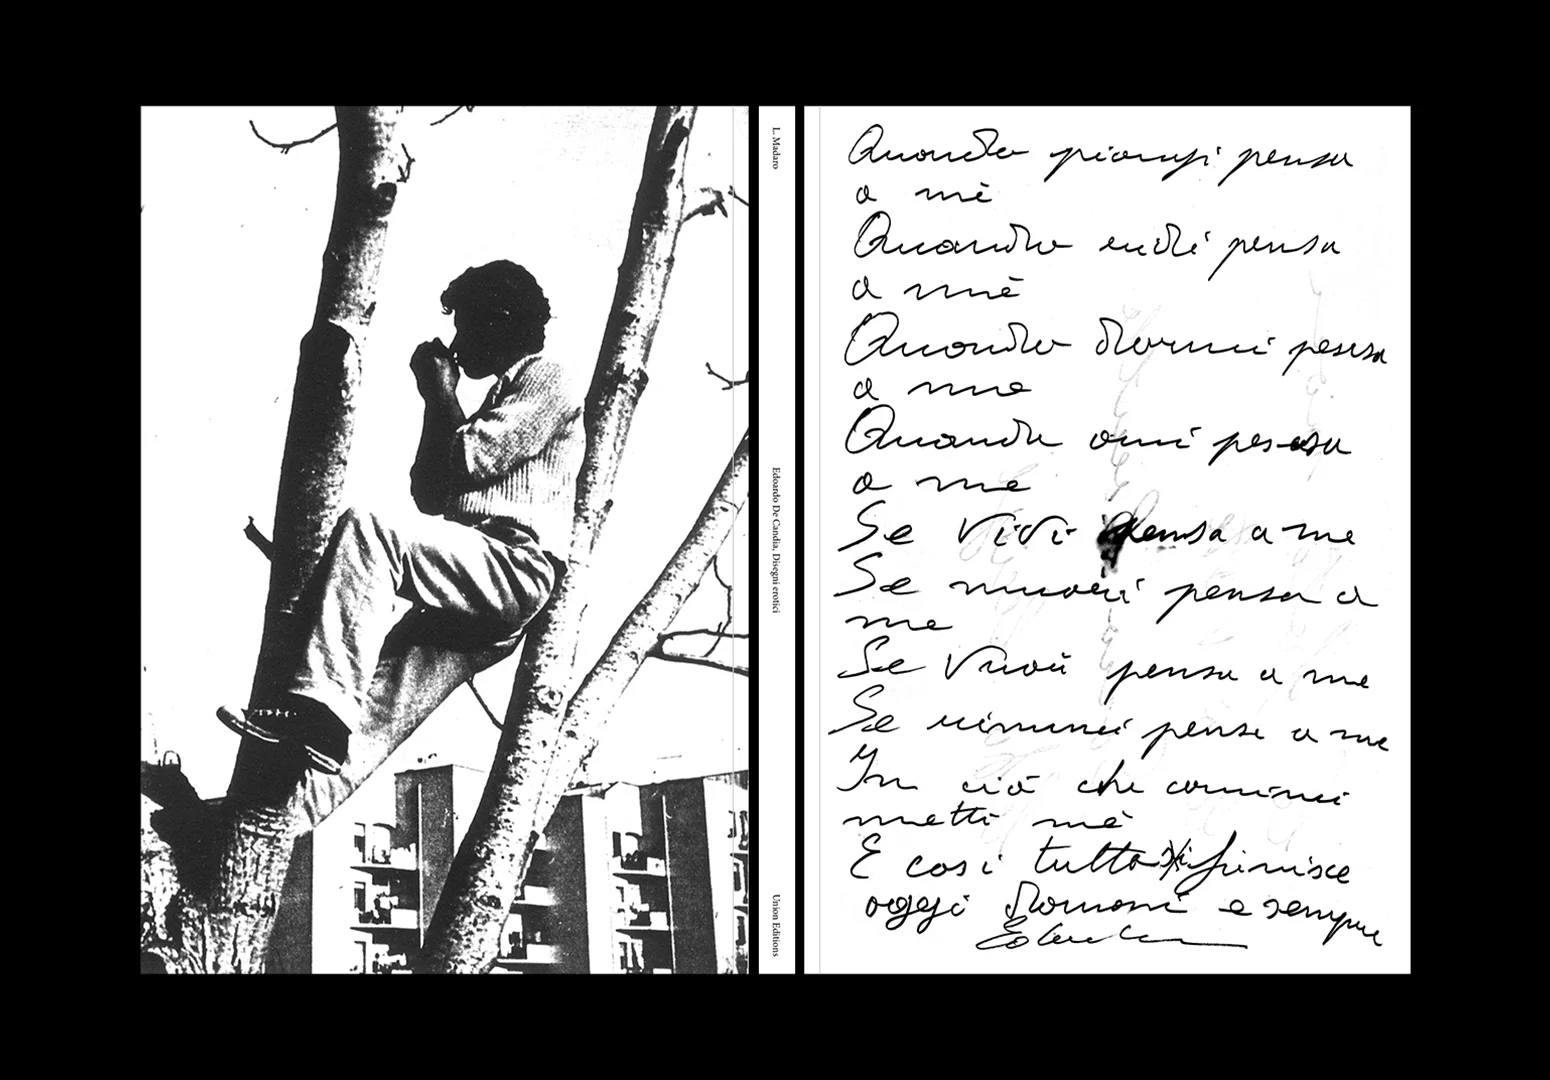 L. Madaro
Edoardo De Candia, Disegni erotici
Union Editions
Quando piangi pensa
a mè
Quando ridi pensa
a mè
Quando dormi pensa
a me
Quando ami pensa
a me
Se vivi pensa a me
Se muori pensa a
me
Se vuoi pensa a me
Se rimani pensa a me
In ciò che cammini
metti mè
E così tutto finisce
oggi domani e sempre